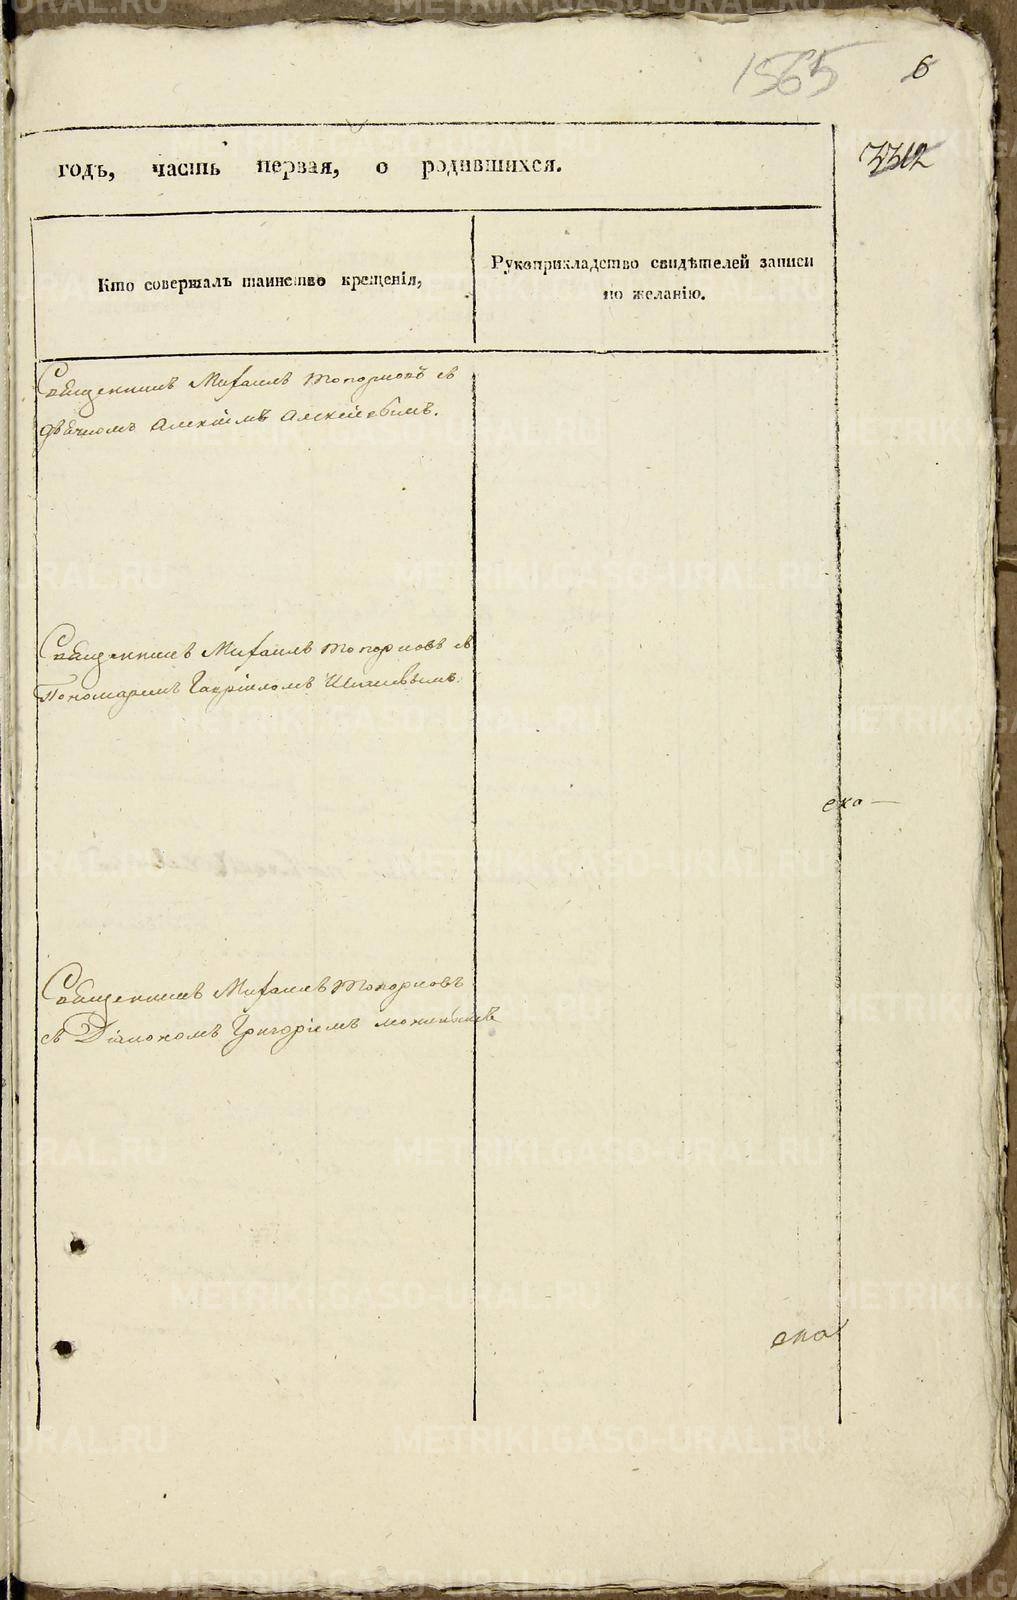 1565
6
годъ, часть первая, о родившихся.
Кто совершалъ таинство крещенія,
Рукоприкладство свидѣтелей записи
по желанію.
Священникъ Михаилъ Топорковъ съ
Дьячкомъ Алексіемъ Алексіевымъ.
Священникъ Михаилъ Топорковъ съ
Пономаремъ Гавріиломъ
Священникъ Михаилъ Топорковъ
съ Діакономъ Григоріемъ
METRIKI.GASO-URAL.RU